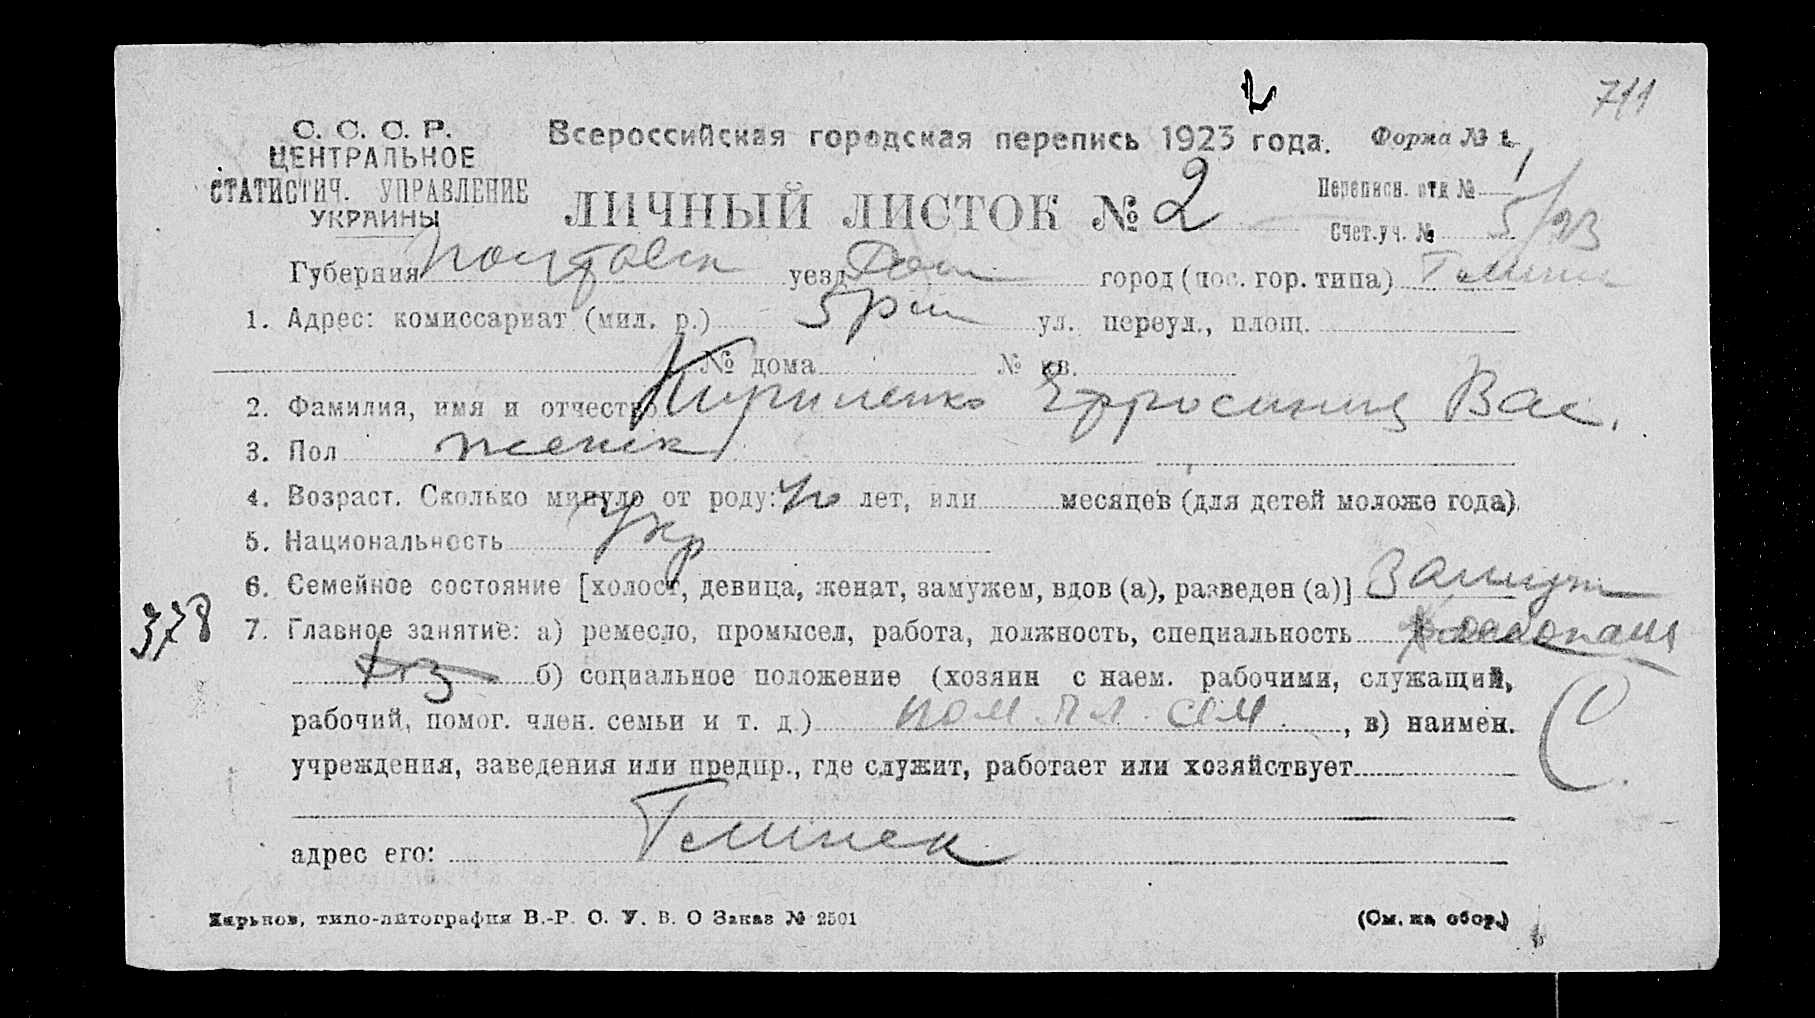 711
2
С. С. С. Р.
ЦЕНТРАЛЬНОЕ
СТАТИСТИЧ. УПРАВЛЕНИЕ
УКРАИНЫ
Всероссийская городская перепись 1923 года. Форма № 1
ЛИЧНЫЙ ЛИСТОК № 2
Переписн. отд №
Счет.уч. № 5/93
Губерния Полтавск уезд город (пос. гор. типа)
1. Адрес: комиссариат (мил. р.) 5 рай ул. переул., площ.
№ дома № кв.
2. Фамилия, имя и отчество Кириленко Ефросиния Вас.
3. Пол женск
4. Возраст. Сколько минуло от роду: 40 лет, или месяцев (для детей моложе года).
5. Национальность Укр
6. Семейное состояние [холост, девица, женат, замужем, вдов (а), разведен (а)] Замуж
378
7. Главное занятие: а) ремесло, промысел, работа, должность, специальность
б) социальное положение (хозяин с наем. рабочими, служащий,
рабочий, помог. член. семьи и т. д.) пом чл. сем , в) наимен.
учреждения, заведения или предпр., где служит, работает или хозяйствует
адрес его:
Харьков, типо-литография В.-Р. О. У. В. О Заказ № 2501 (См. на обор.)